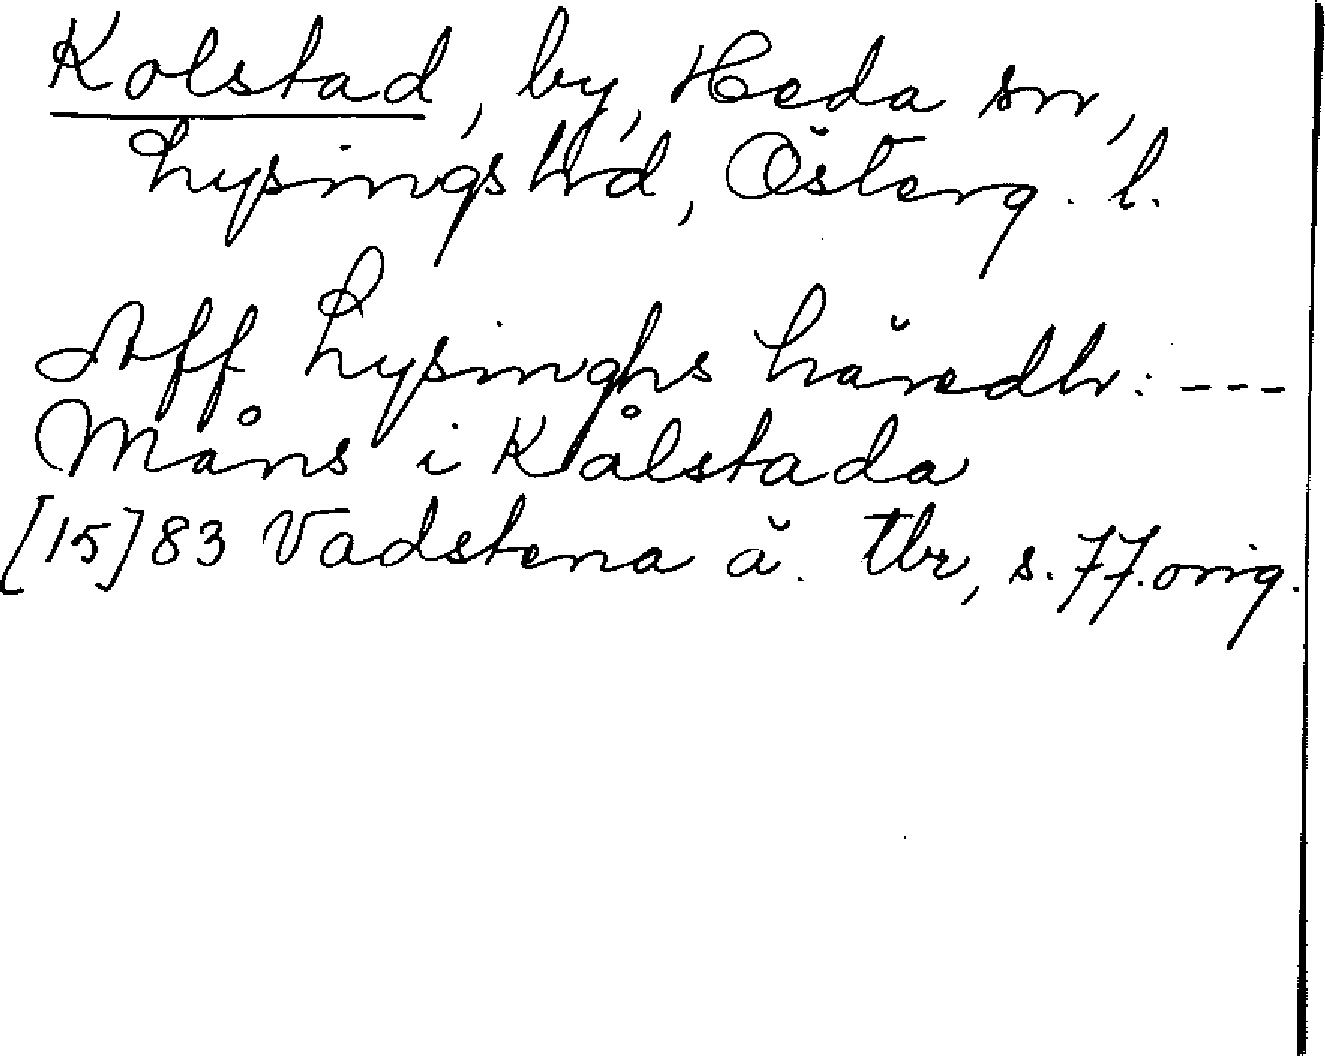 Kolstad, by, Heda sn,
Lysings hd, Österg. l.
Aff Lysinghs häredh: ---
Måns i Kålstada
[15]83 Vadstena ä. tbr, s. 77. orig.